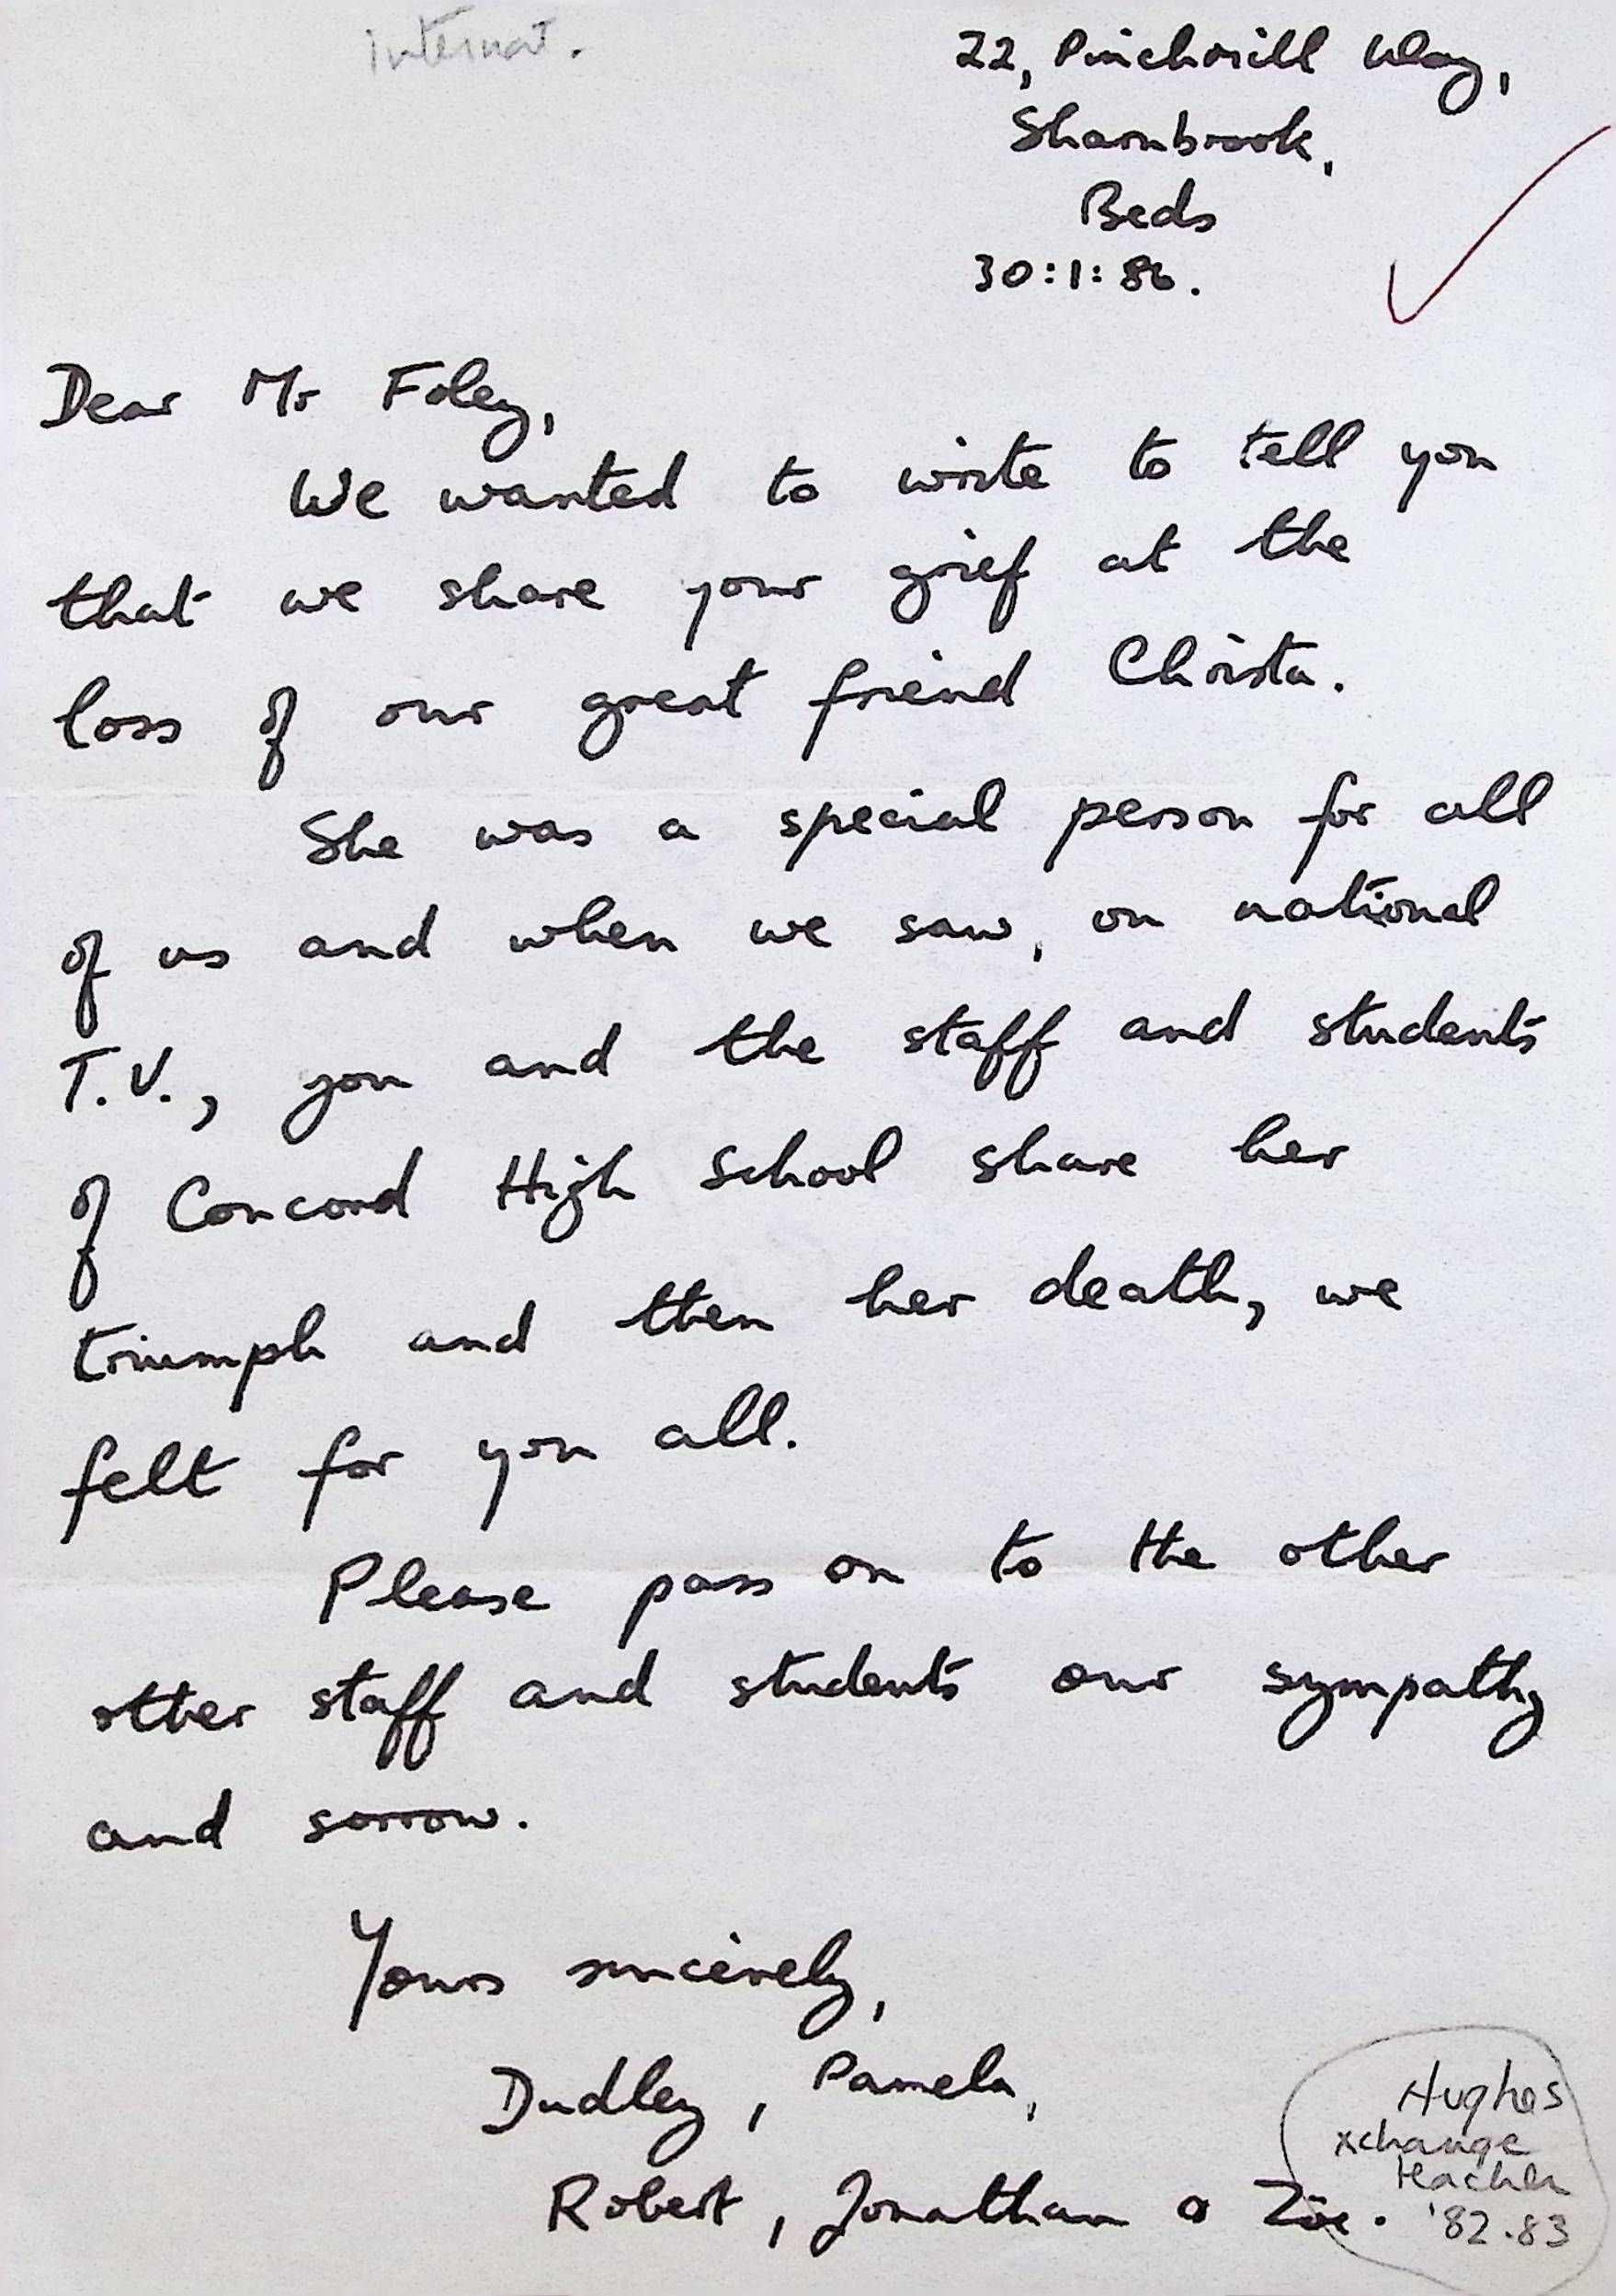 Internat.
22, Pinchmill Way,
Sharnbrook,
Beds
30:1:86.
Dear Mr Foley,
We wanted to write to tell you
that we share your grief at the
loss of our great friend Christa.
She was a special person for all
of us and when we saw, on national
T.V., you and the staff and students
of Concord High School share her
triumph and then her death, we
felt for you all.
Please pass on to the other
other staff and students our sympathy
and sorrow.
Yours sincerely,
Dudley, Pamela,
Robert, Jonathan & Zöe.
Hughes
xchange
teacher
'82.83